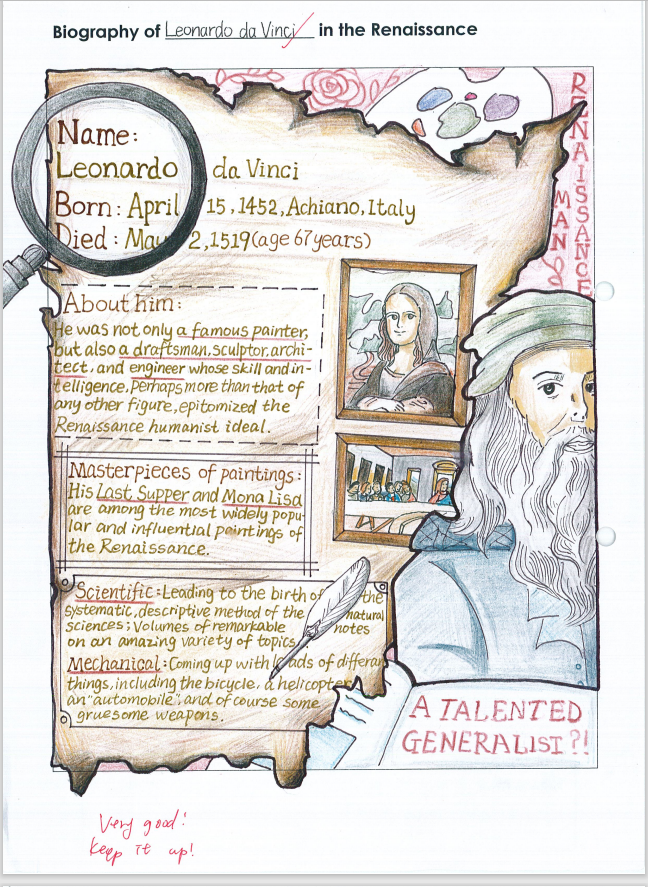 Biography of Leonardo da Vinci in the Renaissance
RENAISSANCE
MAN
Name:
Leonardo da Vinci
Born: April 15, 1452, Achiano, Italy
Died: May 2, 1519 (age 67 years)
About him:
He was not only a famous painter,
but also a draftsman, sculptor, archi-
tect, and engineer whose skill and in-
telligence, perhaps more than that of
any other figure, epitomized the
Renaissance humanist ideal.
Masterpieces of paintings:
His Last Supper and Mona Lisa
are among the most widely popu-
lar and influential paintings of
the Renaissance.
Scientific: Leading to the birth of the
systematic, descriptive method of the natural
sciences; Volumes of remarkable notes
on an amazing variety of topics
Mechanical: Coming up with loads of differan
things, including the bicycle, a helicopter
an "automobile", and of course some
gruesome weapons.
A TALENTED
GENERALIST?!
Very good!
Keep it up!